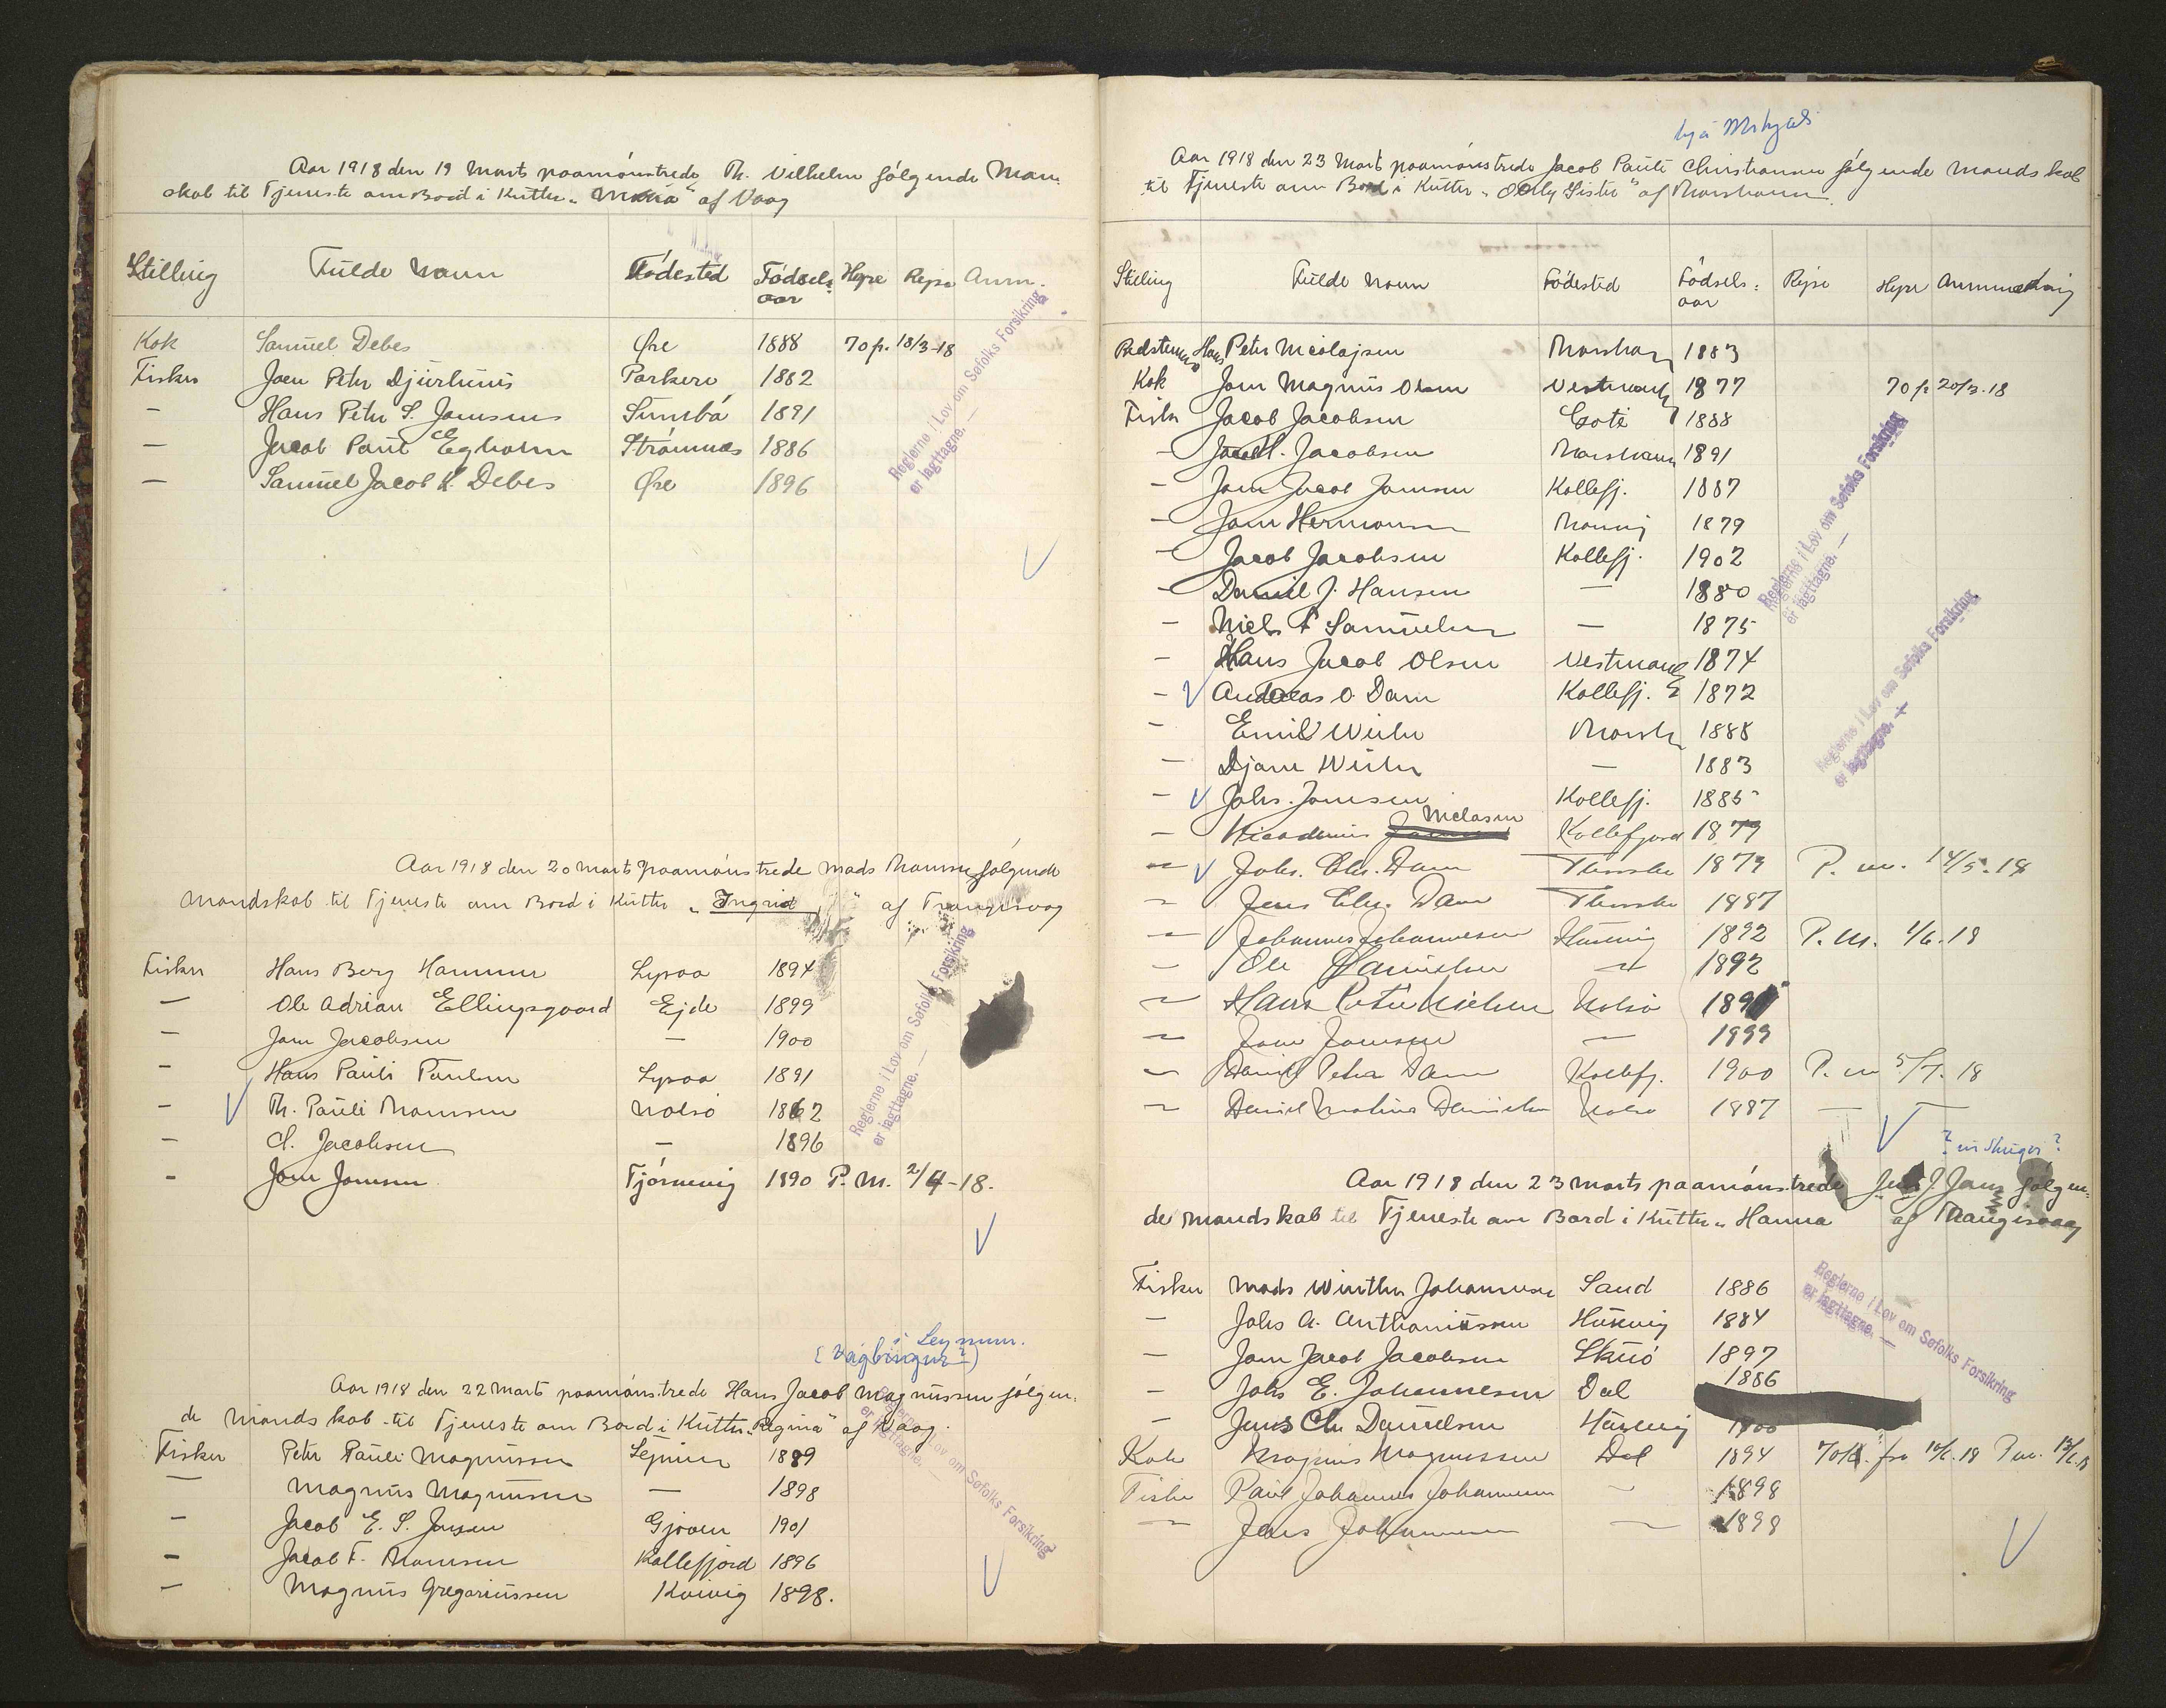 Aar 1918 den 19 Marts paamönstrede Th. Vilhelm fölgende Man-
skab til Tjeneste om Bord i Kutter „Maria" af Vaag
Stilling Fulde Navn Födested Födsels aar Hyre Rejse Anm.
Kok Samuel Debes Øre 1888 70 kr. 18/3-18
Fisker Joen Peter Djurhuus Porkere 1882
— Hans Peter S. Joensen Sumbö 1891
— Jacob Paul Egholm Strömnæs 1886
— Samuel Jacob K. Debes Øre 1896
Reglerne i Lov om Søfolks Forsikring
er iagttagne. —
Aar 1918 den 20 Marts paamönstrede Mads Thomsen fölgende
Mandskab til Tjeneste om Bord i Kutter „Ingrid" af Trangisvaag
Fisker Hans Berg Hammer Lervaa 1894
— Ole Adrian Ellingsgaard Ejde 1899
— Joen Jacobsen — 1900
— Hans Pauli Poulsen 1891
— Th. Pauli Thomsen Nolsö 1862
— Jacobsen — 1896
— Joen Joensen Tjörnevig 1890 P. M. 2/4-18.
Reglerne i Lov om Søfolks Forsikring
er iagttagne. —
i Leynum.
(Vágbingur?)
Aar 1918 den 22 Marts paamönstrede Hans Jacob Magnussen fölgen-
de Mandskab til Tjeneste om Bord i Kutter „Regina" af Vaag.
Fisker Peter Pauli Magnussen Lejnum 1889
— Magnus Magnussen — 1898
— Jacob E. S. Joensen Gjoven 1901
— Jacob F. Thomsen Kollefjord 1896
— Magnus Gregoriussen Kvivig 1898.
Reglerne i Lov om Søfolks Forsikring
er iagttagne. —
hjá
Aar 1918 den 23 Marts paamönstrede Jacob Pauli Christiansen fölgende Mandskab
til Tjeneste om Bord i Kutter „Only Sister" af Thorshavn.
Stilling Fulde Navn Födested Födsels-aar Rejse Hyre Anmærkning
Bedstemand Hans Peter Nicolajsen Thorshavn 1883
Kok Joen Magnus Olsen Vestmanh 1877 70 kr 20/3-18
Fisker Jacob Jacobsen Gote 1888
— Jacob H. Jacobsen Thorshavn 1891
— Joen Jacob Joensen Kollefj. 1887
— Joen Hermansen 1879
— Jacob Jacobsen Kollefj. 1902
— Daniel J. Hansen — 1880
— Niels F Samuelsen — 1875
— Hans Jacob Olsen Vestmanh 1874
— Andreas O. Dam Kollefj. 1872
— Emil Weihe Thorsh 1888
— Djone Weihe — 1883
— Johs. Joensen Kollefj. 1885
— Nicodemus Niclasen Kollefjord 1879
— Johs. Chr. Dam Thorsh 1879 P. m. 14/5-18
— Jens Chr. Dam Thorsh 1887
— Johannes Johannesen Husevig 1892 P. M. 1/6.18
— Ole Danielsen — 1892
— Hans Peter Nielsen Nolsö 189
— Joen Joensen — 1899
— Daniel Peter Dam Kollefj. 1900 P. m 5/7. 18
— Daniel Mohus Danielsen Nolsö 1887 — —
Reglerne i Lov om Søfolks Forsikring
er iagttagne. —
Reglerne i Lov om Søfolks Forsikring
er iagttagne. +
Aar 1918 den 23 Marts paamönstrede J. fölgen-
de Mandskab til Tjeneste om Bord i Kutter „Hanna af Trangisvaag
Fisker Mads Winther Johannesen Sand 1886
— Johs A. Anthoniussen Husevig 1884
— Joen Jacob Jacobsen Skuö 1897
— Johs E. Johannesen Dal 1886
— Jens Chr Danielsen Husevig 1900
Kok Magnus Magnussen Dal 1894 70 k. fra
Fisker Paul Johannes Johannesen — 1898
— Jens Johannesen — 1898
Reglerne i Lov om Søfolks Forsikring
er iagttagne. —